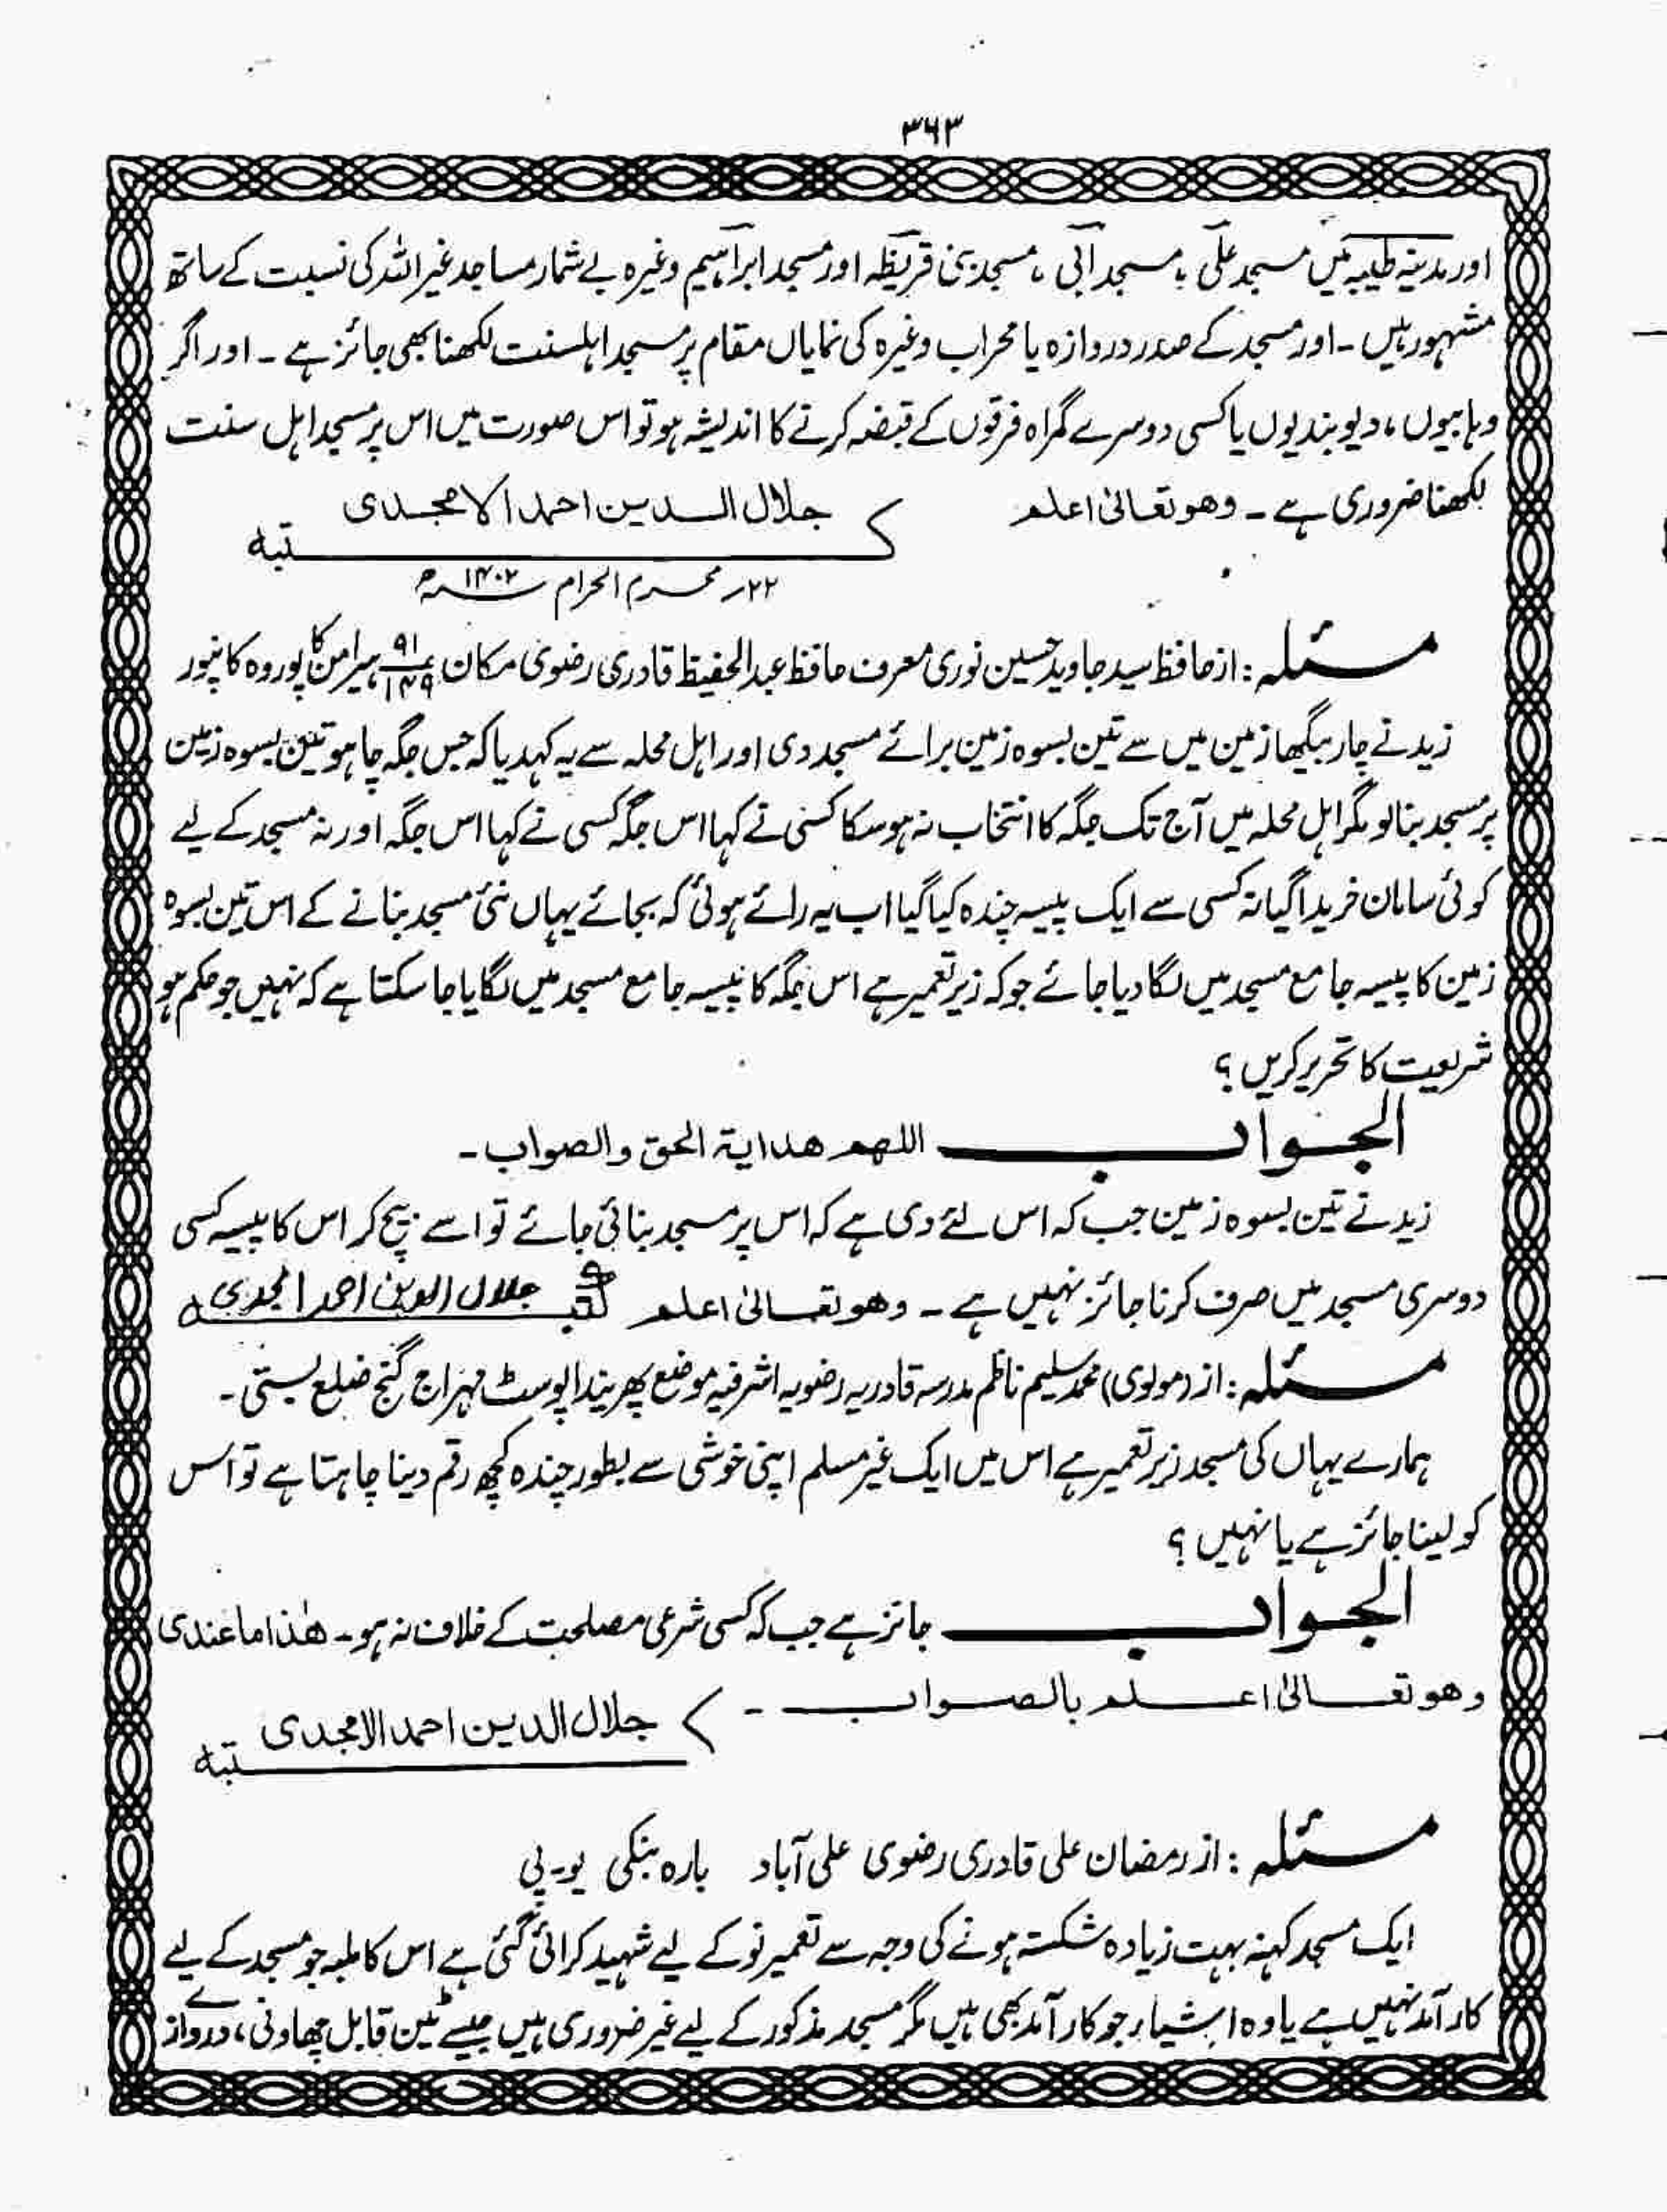 ۳۶۳
اور مدینہ طیبہ میں مسجد علی، مسجد ابی، مسجد بنی قریظہ اور مسجد ابراہیم وغیرہ بے شمار مساجد غیر اللہ کی نسبت کے ساتھ
مشہور ہیں۔ اور مسجد کے صدر دروازہ یا محراب وغیرہ کی نمایاں مقام پر مسجد اہلسنت لکھنا بھی جائز ہے۔ اور اگر
وہابیوں، دیوبندیوں یا کسی دوسرے گمراہ فرقوں کے قبضہ کرنے کا اندیشہ ہو تو اس صورت میں اس پر مسجد اہل سنت
لکھنا ضروری ہے۔ وھو تعالیٰ اعلم
کتبہ جلال الدین احمد الامجدی
۲۲؍ محرم الحرام ۱۴۰۲ھ
مسئلہ: از حافظ سید جاوید حسین نوری معرفت حافظ عبدالحفیظ قادری رضوی مکان ۹۱/۱۴۹ ہیرامن کا پوروہ کانپور
زید نے چار بیگھا زمین میں سے تین بسوہ زمین برائے مسجد دی اور اہل محلہ سے یہ کہدیا کہ جس جگہ چاہو تین بسوہ زمین
پر مسجد بنالو مگر اہل محلہ میں آج تک جگہ کا انتخاب نہ ہوسکا کسی نے کہا اس جگہ کسی نے کہا اس جگہ اور نہ مسجد کے لیے
کوئی سامان خریدا گیا نہ کسی سے ایک پیسہ چندہ کیا گیا اب یہ رائے ہوئی کہ بجائے یہاں نئی مسجد بنانے کے اس تین بسوہ
زمین کا پیسہ جامع مسجد میں لگا دیا جائے جو کہ زیر تعمیر ہے اس جگہ کا پیسہ جامع مسجد میں لگایا جا سکتا ہے کہ نہیں جو حکم ہو
شریعت کا تحریر کریں؟
الجواب اللھم ھدایۃ الحق والصواب۔
زید نے تین بسوہ زمین جب کہ اس لئے دی ہے کہ اس پر مسجد بنائی جائے تو اسے بیچ کر اس کا پیسہ کسی
دوسری مسجد میں صرف کرنا جائز نہیں ہے۔ وھو تعالیٰ اعلم کتبہ جلال الدین احمد امجدی
مسئلہ: از (مولوی) محمد سلیم ناظم مدرسہ قادریہ رضویہ اشرفیہ موضع پھریندا پوسٹ مہراج گنج ضلع بستی۔
ہمارے یہاں کی مسجد زیر تعمیر ہے اس میں ایک غیر مسلم اپنی خوشی سے بطور چندہ کچھ رقم دینا چاہتا ہے تو اس
کو لینا جائز ہے یا نہیں؟
الجواب جائز ہے جب کہ کسی شرعی مصلحت کے خلاف نہ ہو۔ ھٰذا ما عندی
وھو تعالیٰ اعلم بالصواب۔
کتبہ جلال الدین احمد الامجدی
مسئلہ: از رمضان علی قادری رضوی علی آباد بارہ بنکی یو۔پی
ایک مسجد کہنہ بہت زیادہ شکستہ ہونے کی وجہ سے تعمیر نو کے لیے شہید کرائی گئی ہے اس کا ملبہ جو مسجد کے لیے
کارآمد نہیں ہے یا وہ اشیاء جو کارآمد بھی ہیں مگر مسجد مذکور کے لیے غیر ضروری ہیں جیسے ٹین قابل چھاونی، دروازے